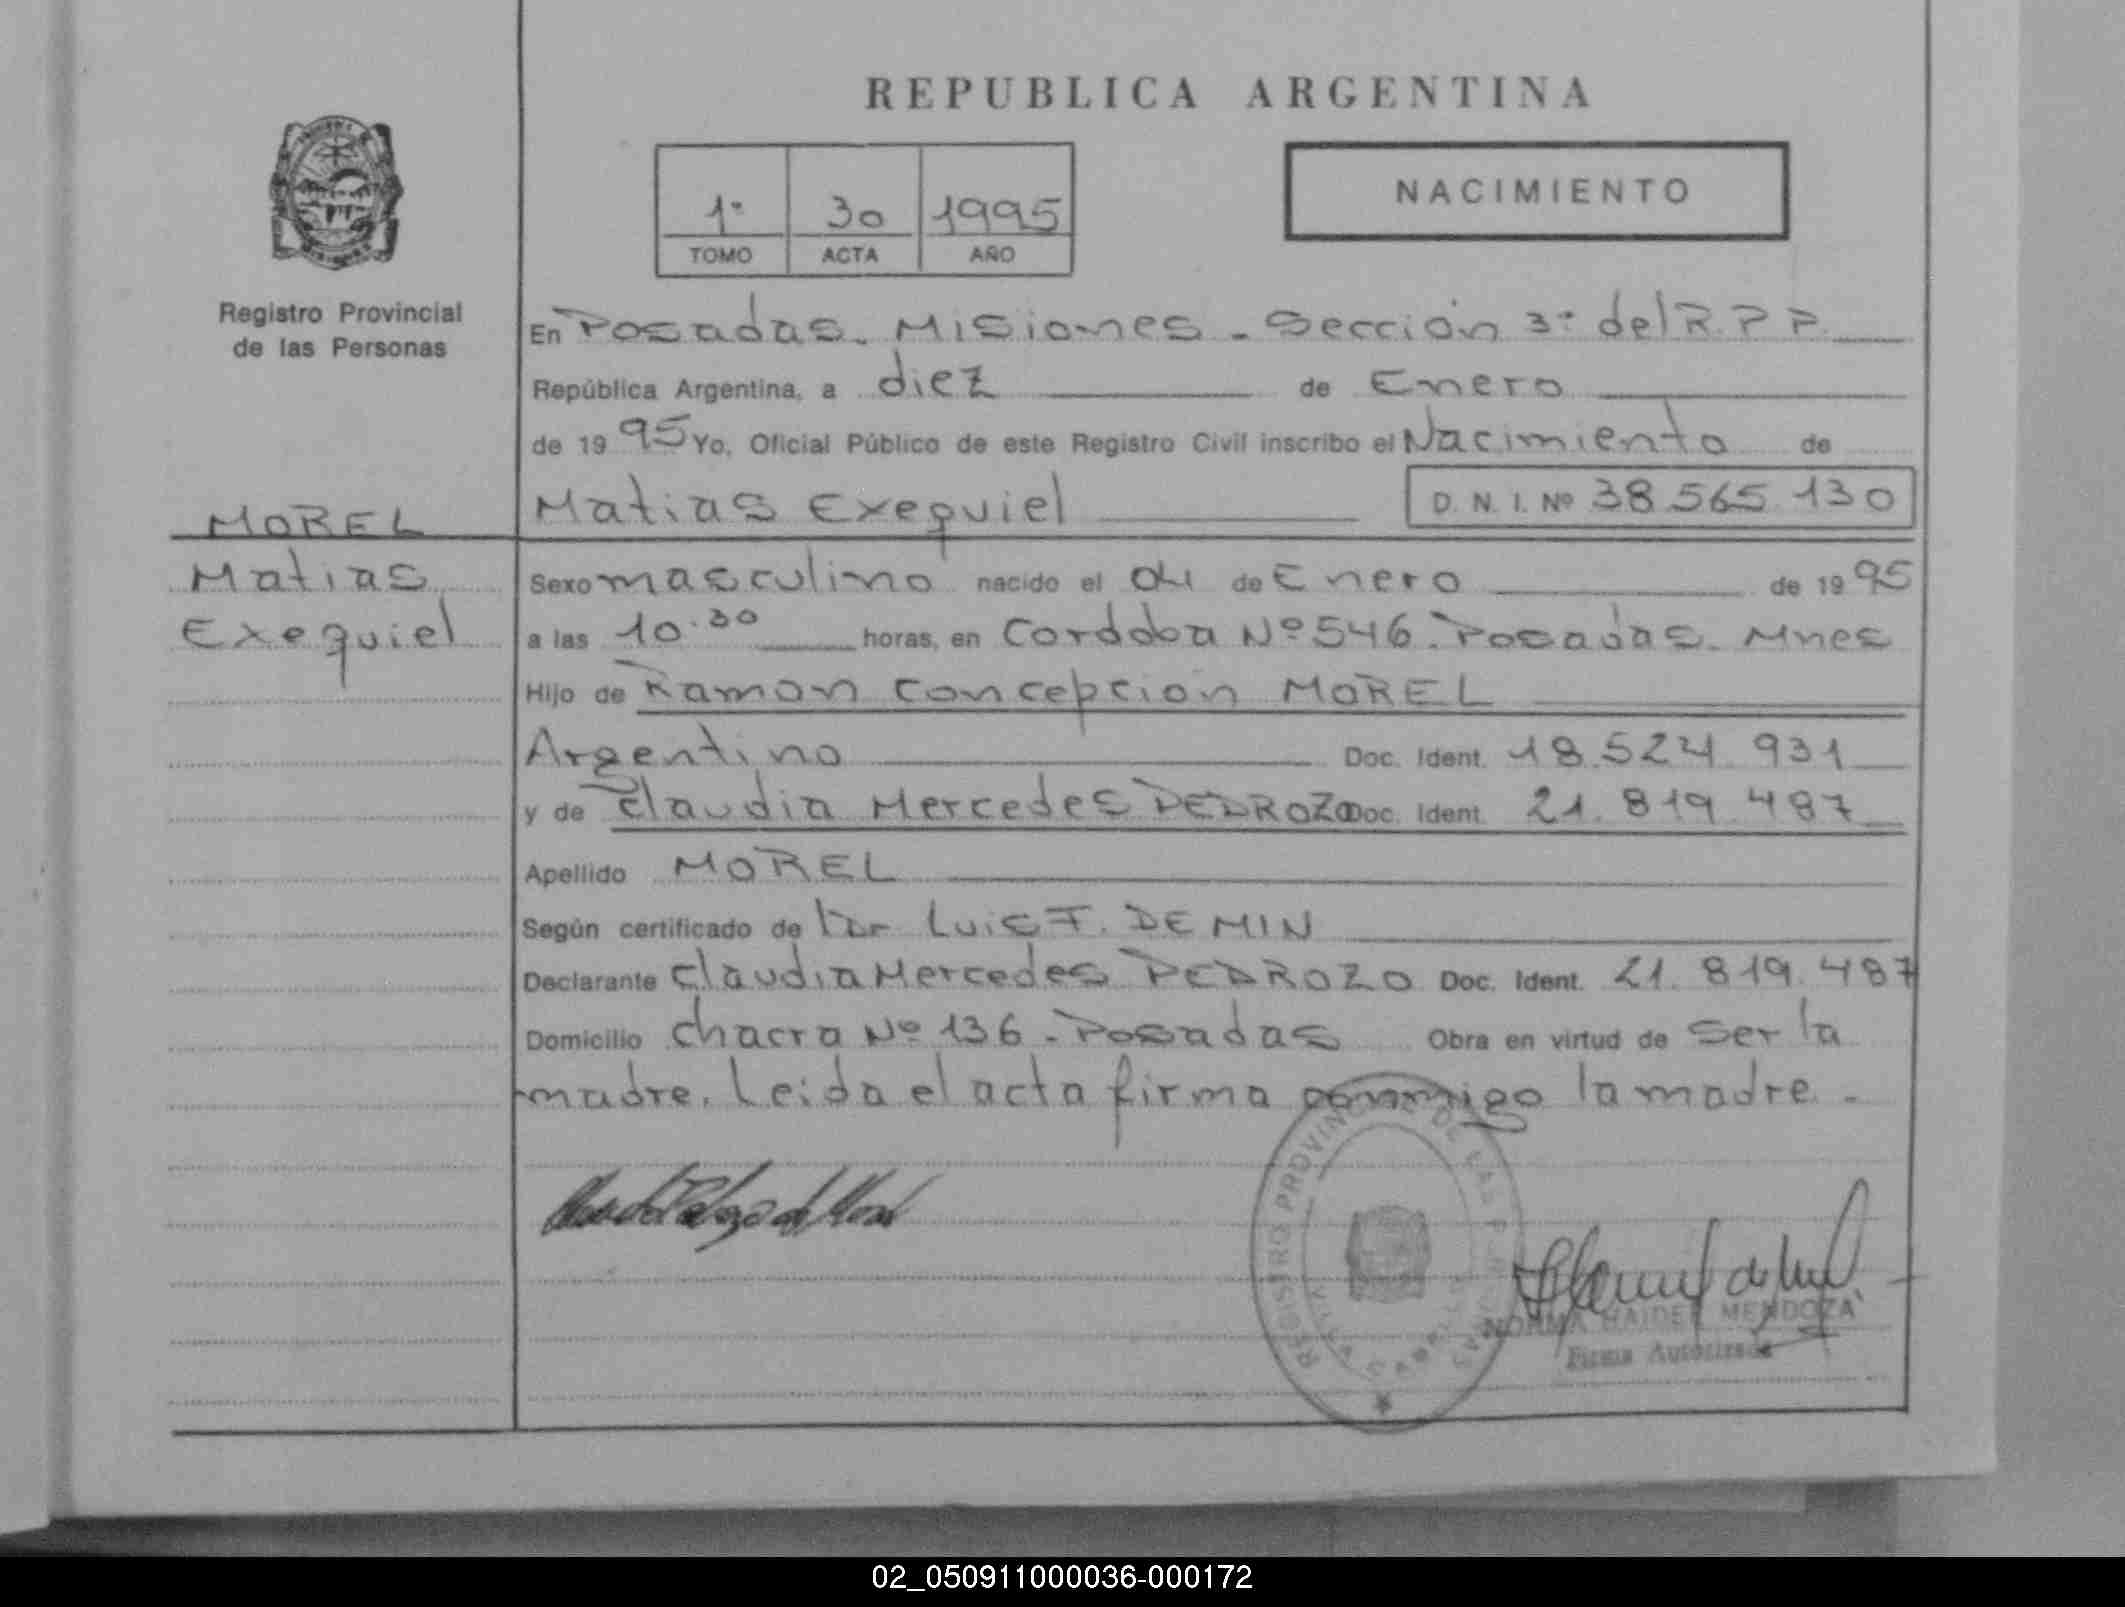 REPUBLICA ARGENTINA
1º 30 1995
TOMO ACTA AÑO
NACIMIENTO
Registro Provincial
de las Personas
En Posadas. Misiones - Sección 3º del R.P.P.
República Argentina, a diez de Enero
de 1995 Yo, Oficial Público de este Registro Civil inscribo el Nacimiento de
Matias Exequiel D.N.I. Nº 38.565.130
MOREL
Matias
Exequiel
Sexo masculino nacido el 04 de Enero de 1995
a las 10.30 horas, en Cordoba Nº 546. Posadas. Mnes
Hijo de Ramon Concepcion MOREL
Argentino Doc. Ident. 18.524.931
y de Claudia Mercedes PEDROZO Doc. Ident. 21.819.487
Apellido MOREL
Según certificado de Dr Luis F. DE MIN
Declarante Claudia Mercedes PEDROZO Doc. Ident. 21.819.487
Domicilio Chacra Nº 136 - Posadas Obra en virtud de Ser la
madre. Leida el acta firma conmigo la madre. -
REGISTRO PROVINCIAL DE LAS PERSONAS
NORMA HAIDEE MENDOZA
Firma Autorizada
02_050911000036-000172